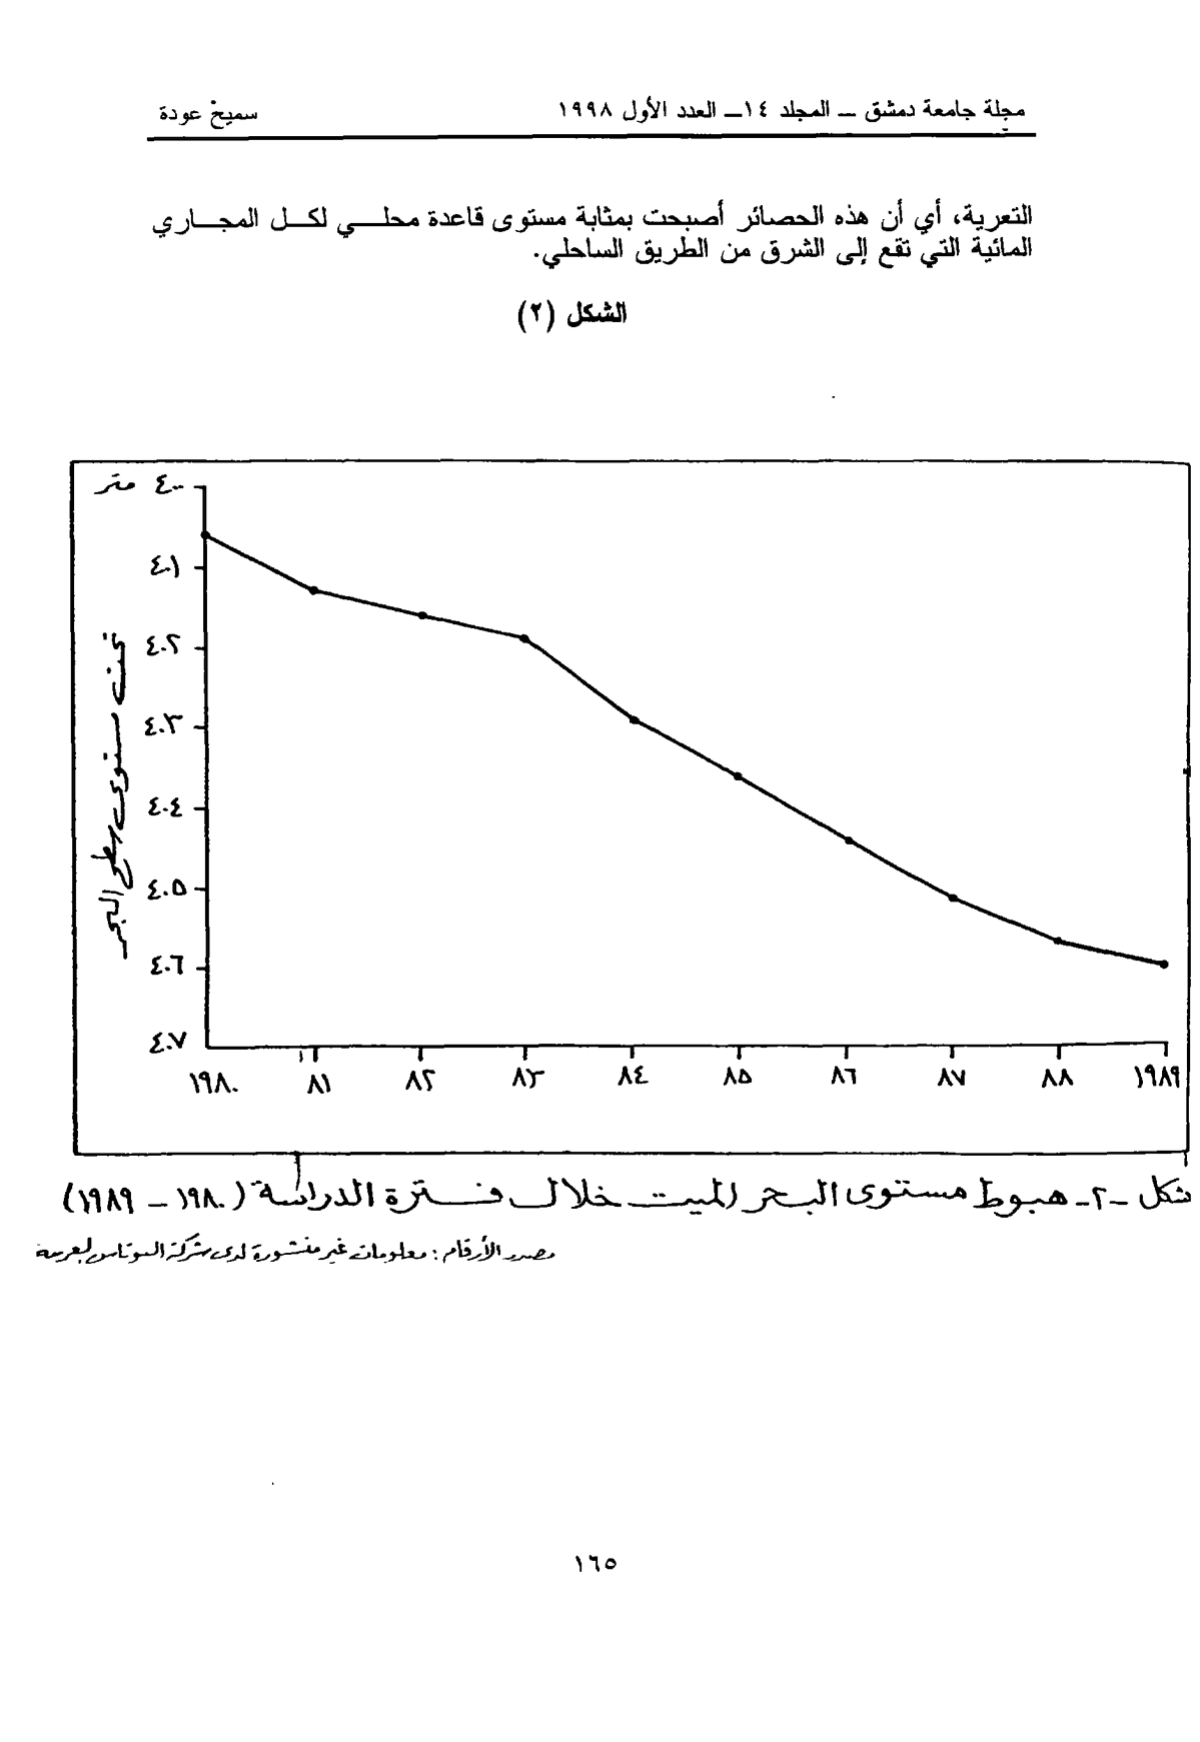 مجلة جامعة دمشق – المجلد ١٤– العدد الأول ١٩٩٨ سميح عودة
التعرية، أي أن هذه الحصائر أصبحت بمثابة مستوى قاعدة محلي لكل المجاري
المائية التي تقع إلى الشرق من الطريق الساحلي.
الشكل (٢)
٤٠٠ متر
٤٠١
٤٠٢
٤٠٣
٤٠٤
٤٠٥
٤٠٦
٤٠٧
تحت مستوى سطح البحر
١٩٨٠ ٨١ ٨٢ ٨٣ ٨٤ ٨٥ ٨٦ ٨٧ ٨٨ ١٩٨٩
شكل -٢- هبوط مستوى البحر الميت خلال فترة الدراسة (١٩٨٠ – ١٩٨٩)
مصدر الأرقام : معلومات غير منشورة لدى شركة البوتاس العربية
١٦٥